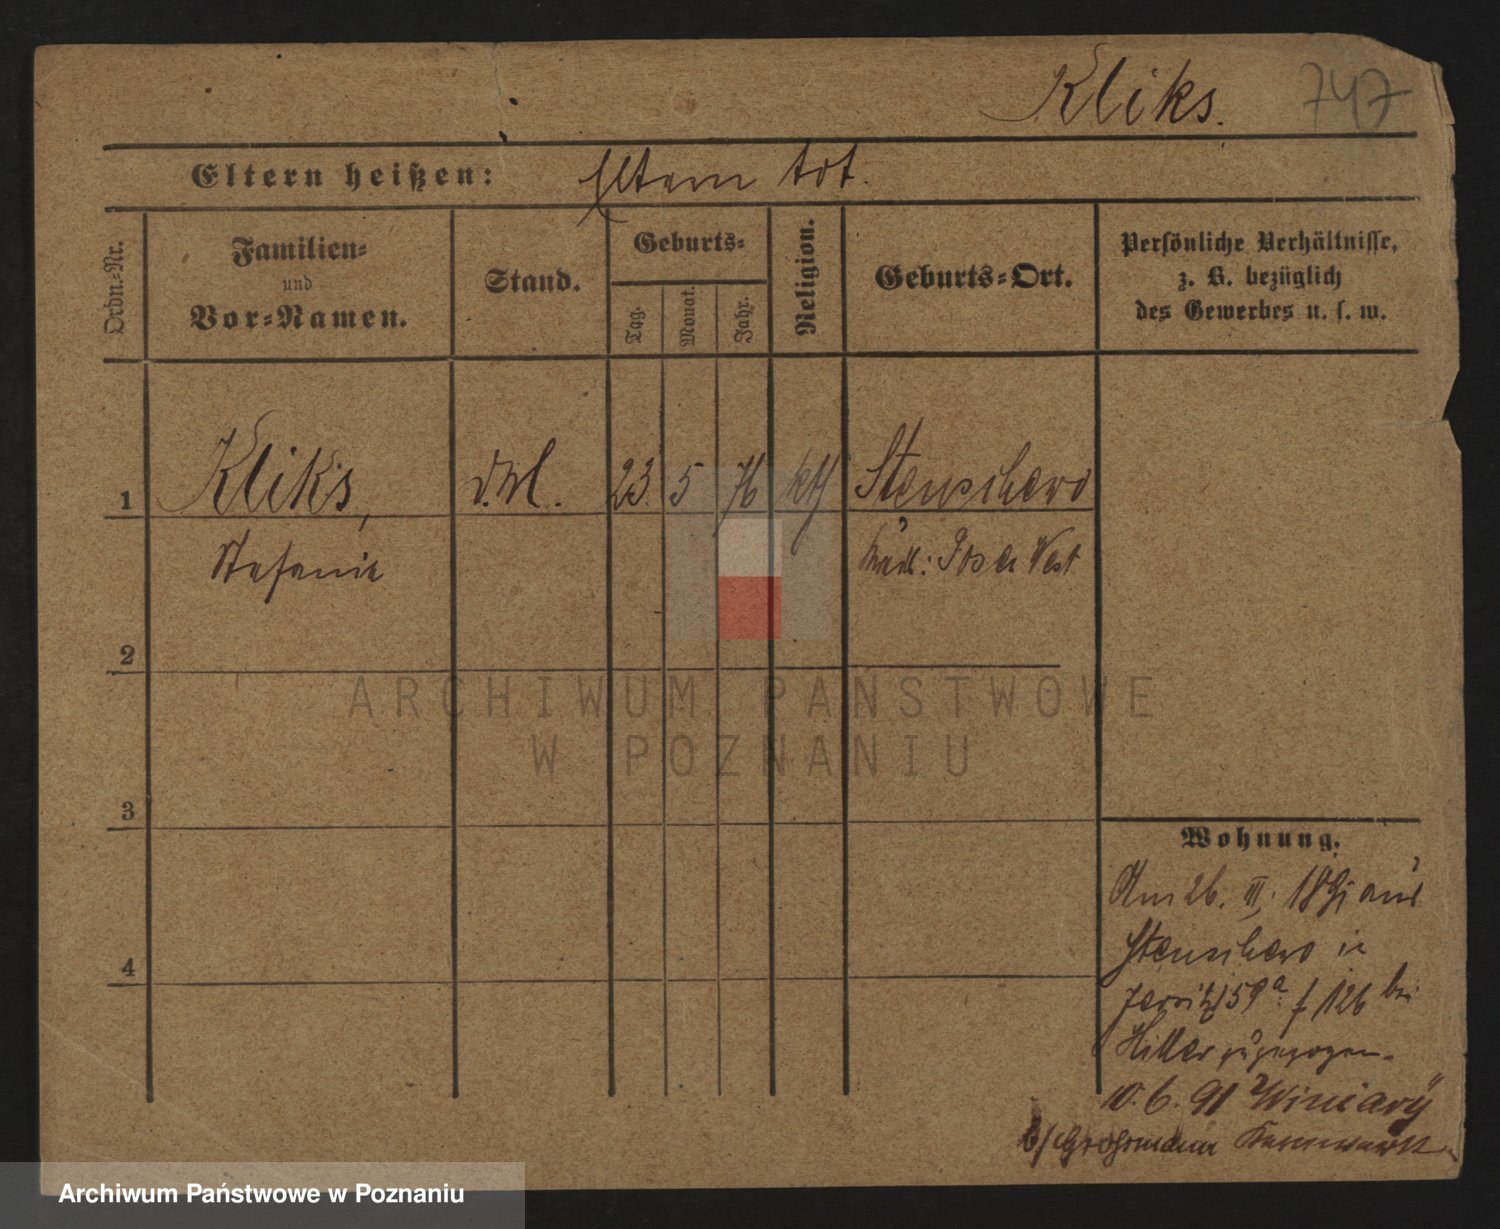 Kliks. 747
Eltern heißen: Eltern tot.
Ordn.-Nr.
Familien-
und
Vor-Namen.
Stand.
Geburts-
Tag.
Monat.
Jahr.
Religion.
Geburts-Ort.
Persönliche Verhältnisse,
z. B. bezüglich
des Gewerbes u. s. w.
1 Kliks, 23. 5 76 kth Stenschewo
Stefanie Posen West
2
3
4
Wohnung.
Am 26. III. 1891 aus
Stenschewo in
Jersitz 59a. f 126 bei
Hiller zugezogen.
10. 6. 91 Winiary
b/ Grossmann Kernwerk
ARCHIWUM PAŃSTWOWE
W POZNANIU
Archiwum Państwowe w Poznaniu